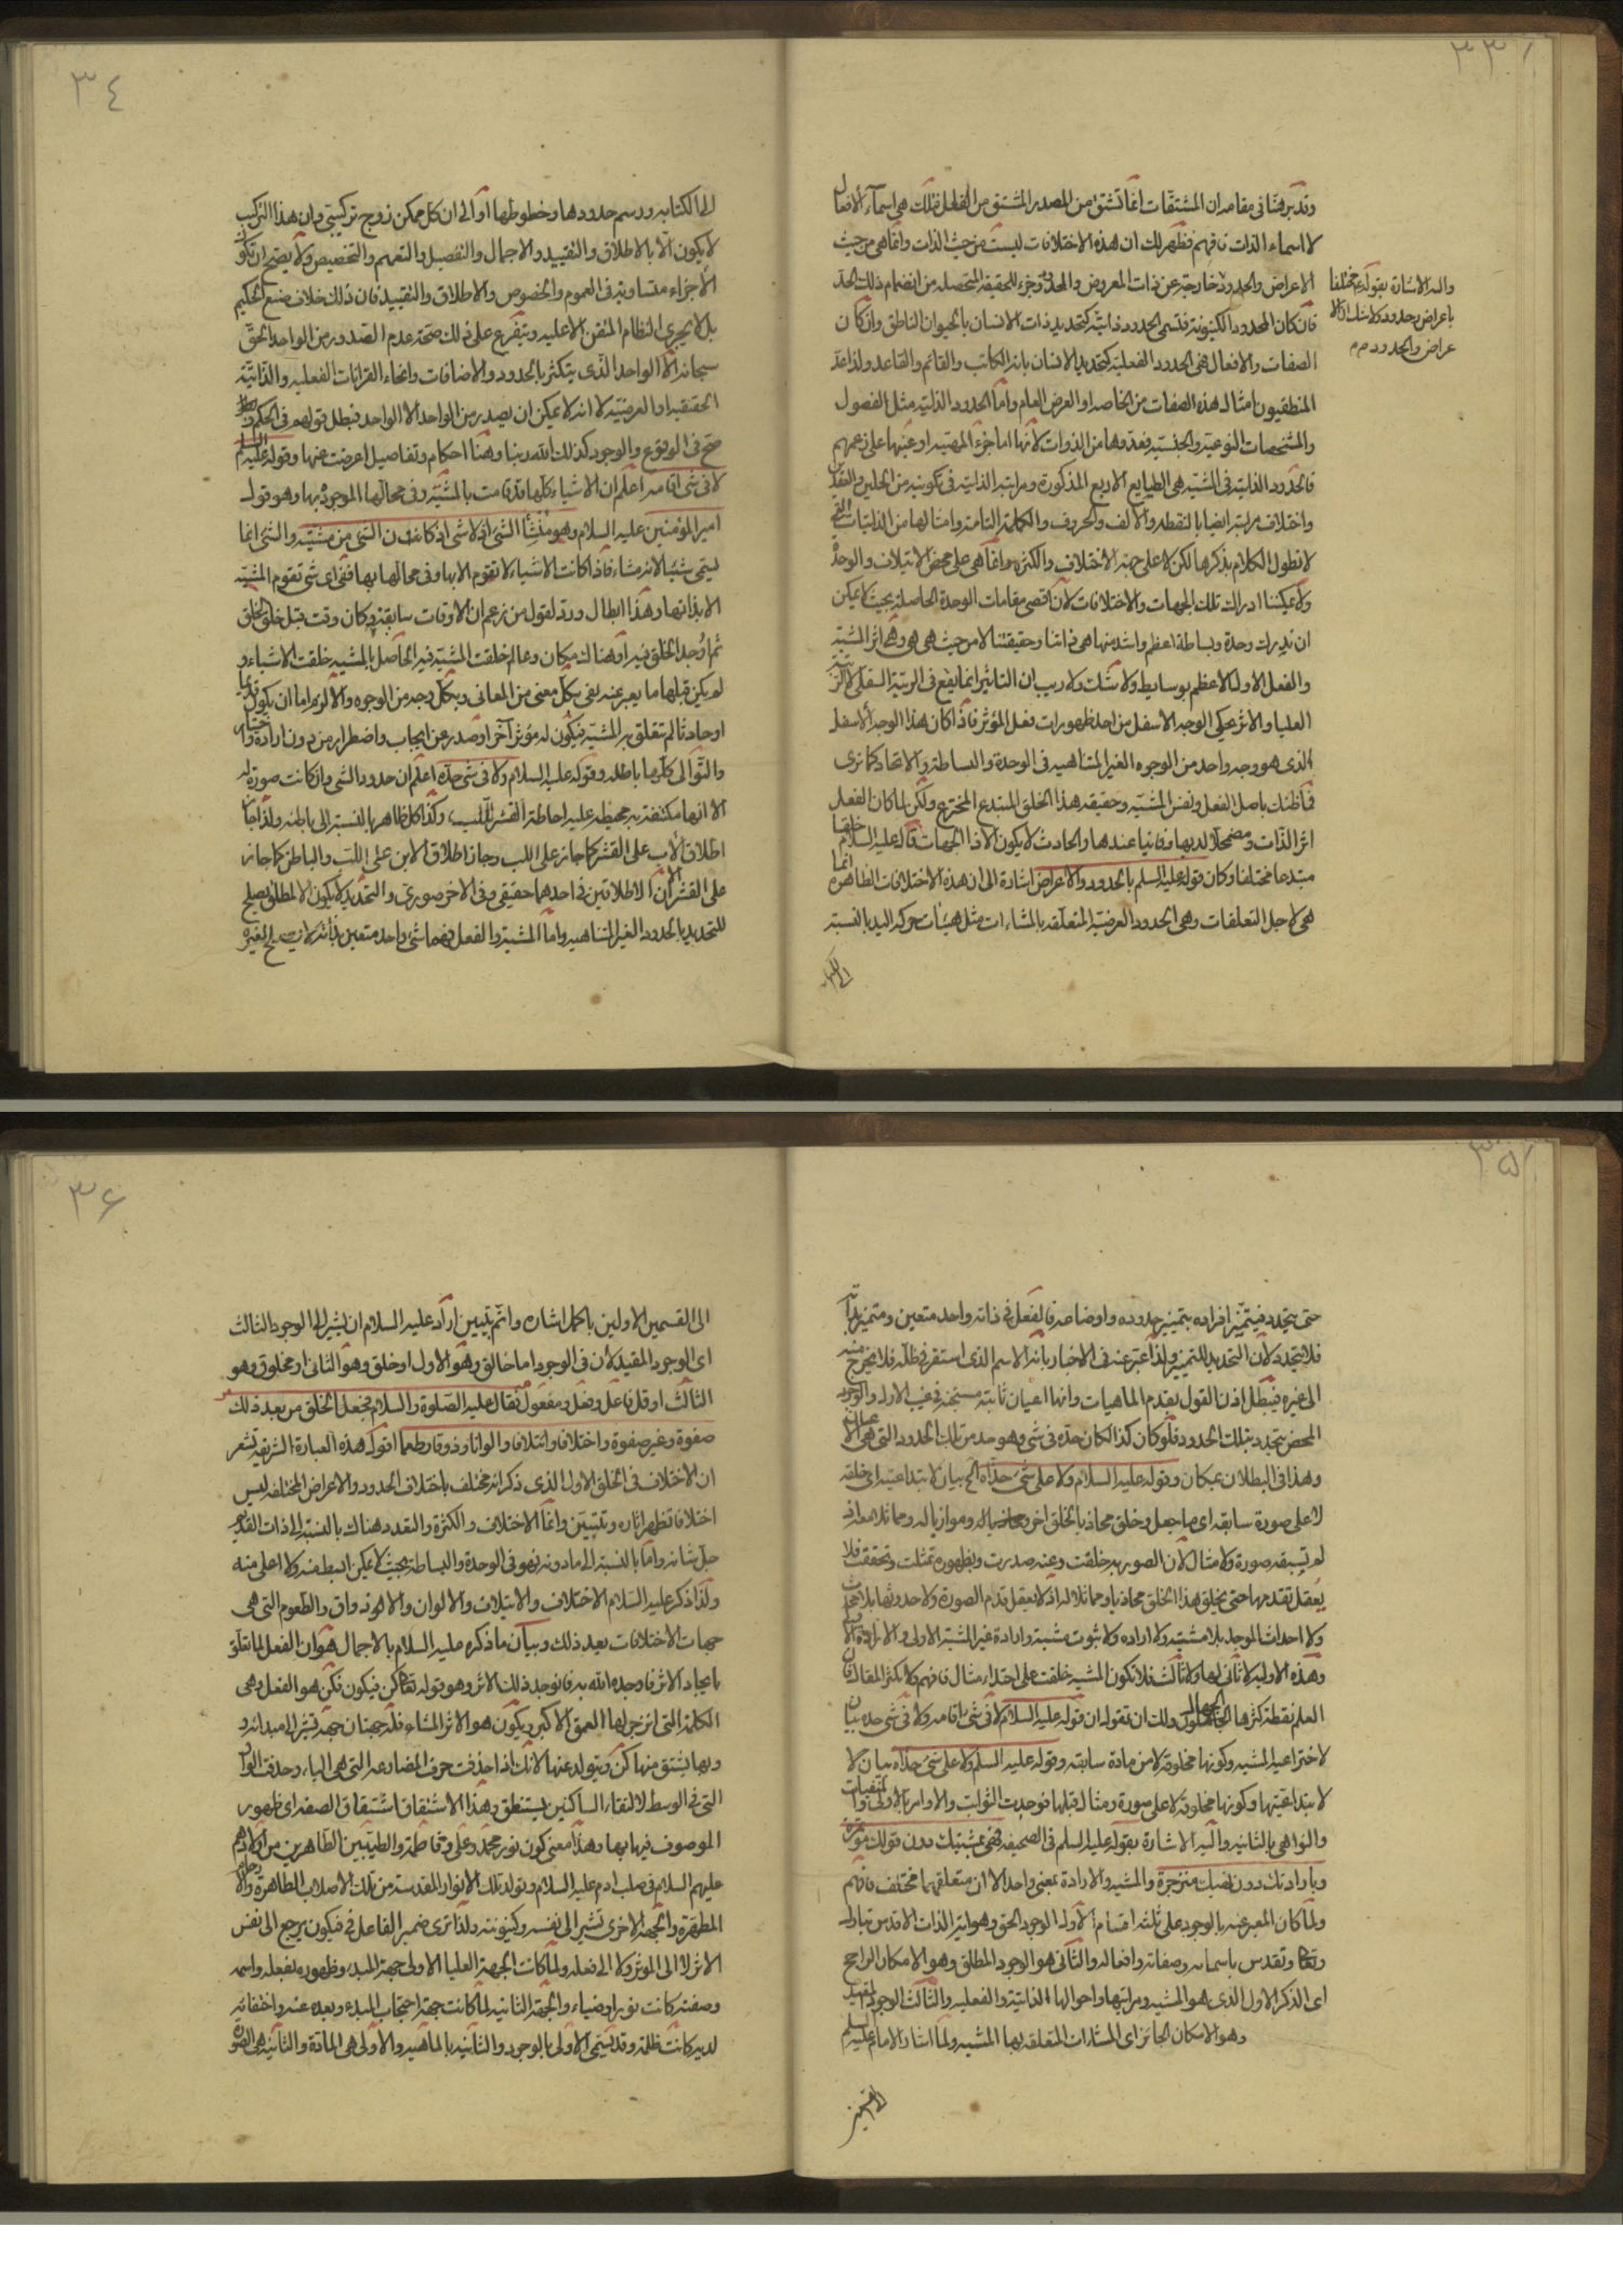 ٣٣
وتدبر هنا في مقامه ان المشتقات انما تشتق من المصدر المشتق من الفعل فتلك هي اسماء الافعال
لا اسماء الذات فافهم فظهر لك ان هذه الاختلافات ليست من حيث الذات وانما هي من حيث
الاعراض والحدود خارجة عن ذات المعروض والمحدود وجزء للحقيقة المتحصله من انضمام ذلك الحد
فان كان المحدود الكينونة فتسمى الحدود ذاتية كتحديد ذات الانسان بالحيوان الناطق وان كان
الصفات والافعال فهي الحدود الفعلية كتحديد الانسان بانه الكاتب والقائم والقاعد ولذا عد
المنطقيون امثال هذه الصفات من الخاصه او العرض العام واما الحدود الذاتيه مثل الفصول
والمشخصات النوعية والجنسية فعدوها من الذوات لانها اما جزء المهيه او عينها على زعمهم
فالحدود الذاتية في المشية هي الطبايع الاربع المذكورة ومراتبه الذاتية في تكوينه من الحلين والعقدين
واختلاف مراتبه ايضا بالنقطه والالف والحروف والكلمة التامة وامثالها من الذاتيات التي
لا نطول الكلام بذكرها لكن لا على جهة الاختلاف والكثره وانما هي على محض الايتلاف والوحدة
ولا يمكننا ادراك تلك الجهات والاختلافات لان اقصى مقامات الوحدة الحاصلة بحيث لا يمكن
ان ندرك وحدة وبساطة اعظم واشد منها هي ذاتنا وحقيقتنا الا من حيث هي هي وهي اثر المشية
والفعل الاول الاعظم بوسايط ولا شك ولا ريب ان التاثير انما يقع في الرتبة السفلى لا الرتبة
العليا والاثر يحكي الوجه الاسفل من احد ظهورات فعل المؤثر فاذا كان هذا الوجه الاسفل
الذى هو وجه واحد من الوجوه الغير المتناهيه في الوحدة والبساطة والاتحاد كما ترى
فما ظنك باصل الفعل ونفس المشية وحقيقة هذا الخلق المبتدع المخترع ولكن لما كان الفعل
اثر الذات ومضمحلا لديها وفانيا عندها والحادث لا يكون الا ذا الجهات قال عليه السلام خلقا
مبتدعا مختلفا وكان قوله عليه السلم بالحدود والاعراض اشارة الى ان هذه الاختلافات الظاهره انما
هي لاجل التعلقات وهي الحدود العرضية المتعلقة بالمشاءات مثل هيئات حركة اليد بالنسبة
واليه الاشارة بقوله ع مختلفا
باعراض وحدود ولا شك ان الا
عراض والحدود مم
٣٤
الى الكتابه ورسم حدودها وخطوطها او الى ان كل ممكن زوج تركيبي وان هذا التركيب
لا يكون الا بالاطلاق والتقييد والاجمال والتفصيل والتعميم والتخصيص ولا يصح ان تكون
الاجزاء متساوية في العموم والخصوص والاطلاق والتقييد فان ذلك خلاف صنع الحكيم
بل لا يجري النظام المتقن الا عليه ويتفرع على ذلك صحة عدم الصدور من الواحد الحق
سبحانه الا الواحد الذى يتكثر بالحدود والاضافات وانحاء القرانات الفعليه والذاتية
الحقيقيه او العرضيه لا انه لا يمكن ان يصدر من الواحد الا الواحد فبطل قولهم في الحكم
صح في الوقوع والوجود كذلك الله ربنا وهنا احكام وتفاصيل اعرضت عنها وقوله عليه السلم
لا في شئ اقامه اعلم ان الاشياء كلها قد قامت بالمشيه وفي محالها الموجودة بها وهو قول
امير المؤمنين عليه السلام وهو منشأ الشئ اذ لا شئ اذ كان من الشئ من مشيته والشئ انما
يسمى شيئا لانه مشاء فاذا كانت الاشياء لا تقوم الا بها وفي محالها بها ففي اى شئ تقوم المشيه
الا بذاتها وهذا ابطال ورد لقول من زعم ان الاوقات سابقة وكان وقت قبل خلق الخلق
ثم اوجد الخلق فيه او هنالك مكان وعالم خلقت المشية فيه الحاصل بالمشيه خلقت الاشياء و
لم يكن قبلها ما يعبر عنه لفي بكل معنى من المعاني وبكل وجه من الوجوه والا لزم اما ان يكون قديما
او حادثا لم تتعلق به المشيه فيكون له مؤثر آخر او صدر عن ايجاب واضطرار من دون ارادة واختيار
والتوالي كلها باطله وقوله عليه السلام ولا في شئ حده اعلم ان حدود الشئ وان كانت صورة له
الا انها مكتنفة به محيطة عليه احاطة القشر اللب، وكذا كل ظاهر بالنسبة الى باطنه ولذا جاز
اطلاق الاب على القشر كما جاز على اللب وجاز اطلاق الابن على اللب والباطن كما جاز
على القشر الا ان الاطلاقين في احدهما حقيقي وفي الاخر صوري والتحديد لا يكون الا لمطلق يصلح
للتحديد بالحدود الغير المتناهيه واما المشية والفعل فهما شئ واحد متعين بذاته لا يصلح لغيره
٣٥
حتى يتحدد فيتميز افراده بتمييز حدوده واوضاعه فالفعل في ذاته واحد متعين ومتميز بذاته
فلا يتحدد لان التحديد للتميز ولذا عبر عنه في الاخبار بانه الاسم الذى استقر في ظله فلا يخرج منه
الى غيره فبطل اذن القول بقدم الماهيات وانها اعيان ثابتة مستجنة في غيب الاول والوجود
المحض يتحدد بتلك الحدود فلو كان كذا لكان حده في شئ وهو حد من تلك الحدود التي هي الاعيان
وهذا في البطلان بمكان وقوله عليه السلام ولا على شئ حذاه الخ بيان لابتداعيته اى خلقه
لا على صورة سابقه اى ما جعل وخلق محاذيا بالخلق اخر وموازيا له ومماثلا معه اذ
لم تسبقه صورة ولا مثال لان الصور به خلقت وعنه صدرت وبظهوره تمثلت وتحققت فلا
يعقل تقدمها حتى يخلق هذا الخلق محاذيا ومماثلا له اذ لا يعقل قدم الصورة ولا حدوثها بلا احداث
ولا احداث الموجد بلا مشيه ولا اراده ولا ثبوت مشية وارادة غير المشية الاولى والارادة الاولى
وهذه الاوليه لا ثاني لها ولا ثالث فلا تكون المشيه خلقت على احتذاء مثال فافهم ولا تكثر المقال فان
العلم نقطة كثرها الجاهلون ولك ان تقول ان قوله عليه السلام لا في شئ اقامه ولا في شئ حده بيان
لاختراعية المشيه وكونها مخلوقة لا من مادة سابقه وقوله عليه السلم ولا على شئ حذاه بيان لا
لابتداعيتها وكونها مخلوقة لا على صورة ومثال قبلها فوجدت الثوابت والاوامر بالاولى والمنفيات
والنواهي بالثانيه واليه الاشارة بقوله عليه السلم في الصحيفه فهي بمشيتك دون قولك مؤتمرة
وبارادتك دون نهيك منزجرة والمشيه والارادة بمعنى واحد الا ان متعلقهما مختلف فافهم
ولما كان المعبر عنه بالوجود على ثلثة اقسام الاول الوجود الحق وهو اثر الذات الاقدس تبارك
وتعالى وتقدس باسمائه وصفاته وافعاله والثاني هو الوجود المطلق وهو الامكان الراجح
اى الذكر الاول الذى هو المشيه ومراتبها واحوالها الذاتية والفعليه والثالث الوجود المقيد
وهو الامكان الجائز اى المشاءات المتعلقه بها المشيه ولما اشار الامام عليه السلم
٣۶
الى القسمين الاولين باكمل اشاره واتم تبيين اراد عليه السلام ان يشير الى الوجود الثالث
اى الوجود المقيد لان في الوجود اما خالق وهو الاول او خلق وهو الثاني او مخلوق وهو
الثالث او قل فاعل وفعل ومفعول فقال عليه الصلوة والسلام فجعل الخلق من بعد ذلك
صفوة وغير صفوة واختلافا وائتلافا والوانا وذوقا وطعما اقول هذه العبارة الشريفة تشعر
ان الاختلاف في الخلق الاول الذى ذكر انه مختلف باختلاف الحدود والاعراض المختلفه ليس
اختلافا تظهر اثاره وتتبين وانما الاختلاف والكثرة والتعدد هناك بالنسبة الى ذات القديم
جل شانه واما بالنسبة الى ما دونه فهو في الوحدة والبساطة بحيث لا يمكن ابسط منه ولا اعلى منه
ولذا ذكر عليه السلام الاختلاف والايتلاف والالوان والاذواق والطعوم التي هي
جهات الاختلافات بعد ذلك وبيان ما ذكره عليه السلام بالاجمال هو ان الفعل لما تعلق
بايجاد الاثر فاوجده الله به فانوجد ذلك الاثر وهو قوله تعالى كن فيكون فكن هو الفعل وهي
الكلمة التي انزجر لها العمق الاكبر ويكون هو الاثر المشاء فله جهتان جهة تشير الى مبدئه و
وبها يشتق منها كن ويتولد عنها لانك اذا حذفت حرف المضارعه التي هي الياء، وحذفت الواو
التي في الوسط لالتقاء الساكنين يستنطق وهذا الاشتقاق اشتقاق الصفه اى ظهور
الموصوف فيها بها وهذا معنى كون نور محمد وعلى وفاطمة والطيبين الطاهرين من اولادهم
عليهم السلام في صلب ادم عليه السلام وتولد تلك الانوار المقدسة من تلك الاصلاب الطاهرة والارحام
المطهرة والجهة الاخرى تشير الى نفسه وكينونته ولذا ترى ضمير الفاعل في فيكون يرجع الى نفس
الاثر لا الى المؤثر ولا الى فعله ولما كانت الجهة العليا الاولى جهة المبدء وظهوره بفعله واسمه
وصفته كانت نورا وضياء والجهة الثانيه لما كانت جهة احتجاب المبدء وبعده عنه واختفائه
لديه كانت ظلمة وقد يسمى الاولى بالوجود والثانيه بالماهيه والاولى هي المادة والثانيه هي الصورة